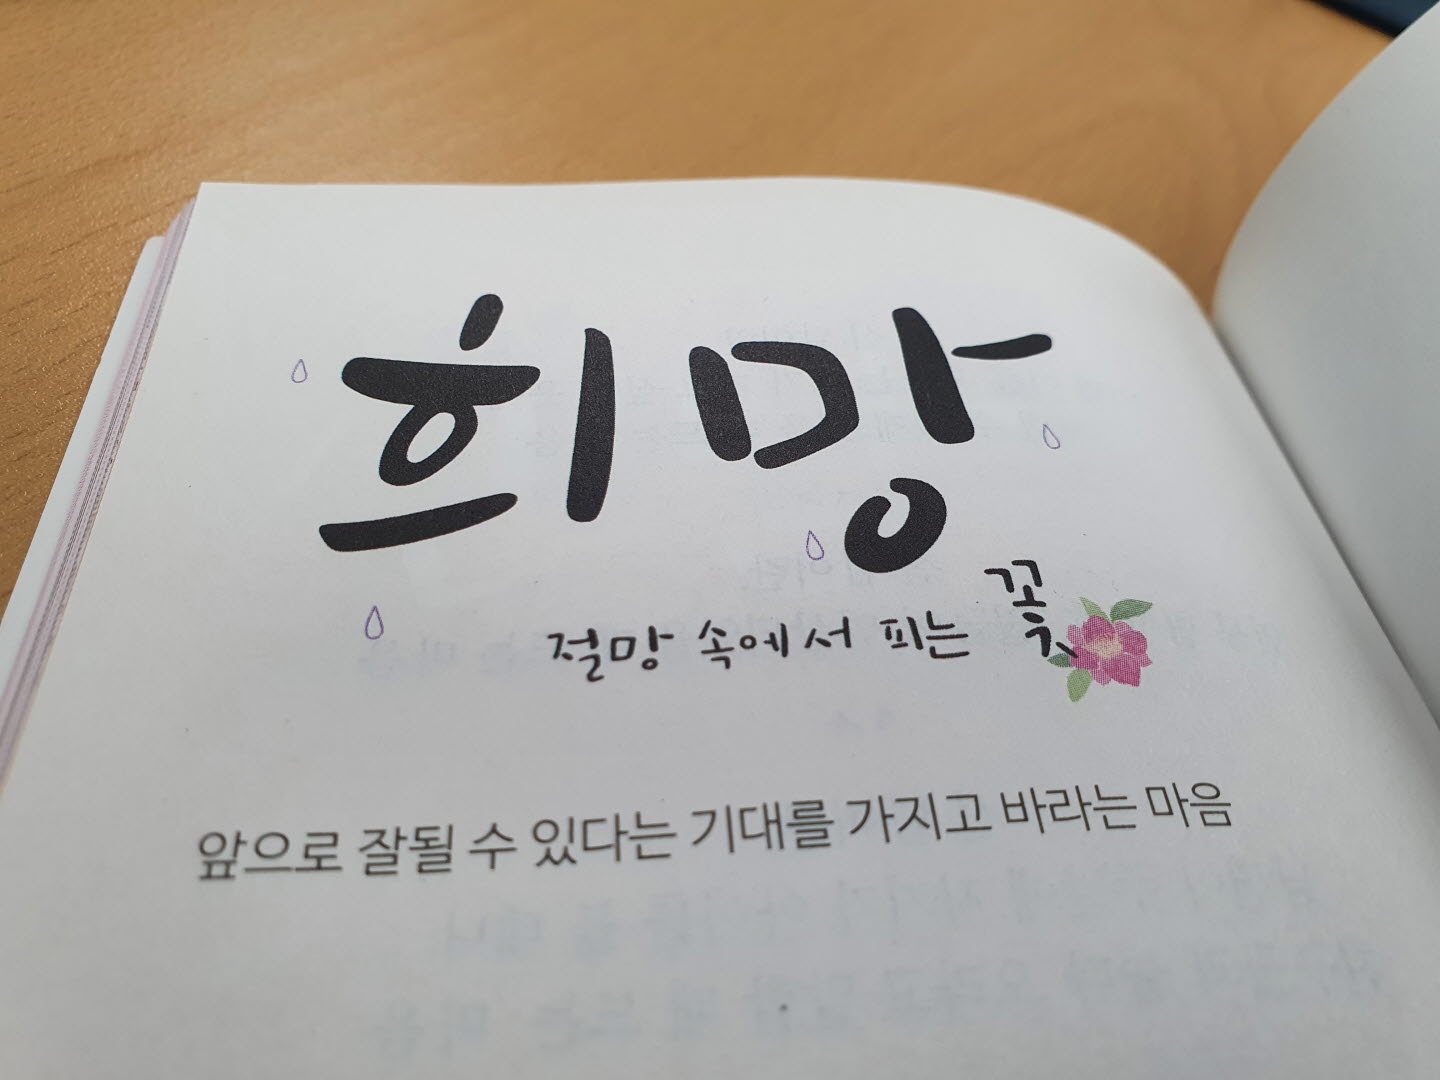 희망
절망 속에서 피는 꽃
앞으로 잘될 수 있다는 기대를 가지고 바라는 마음